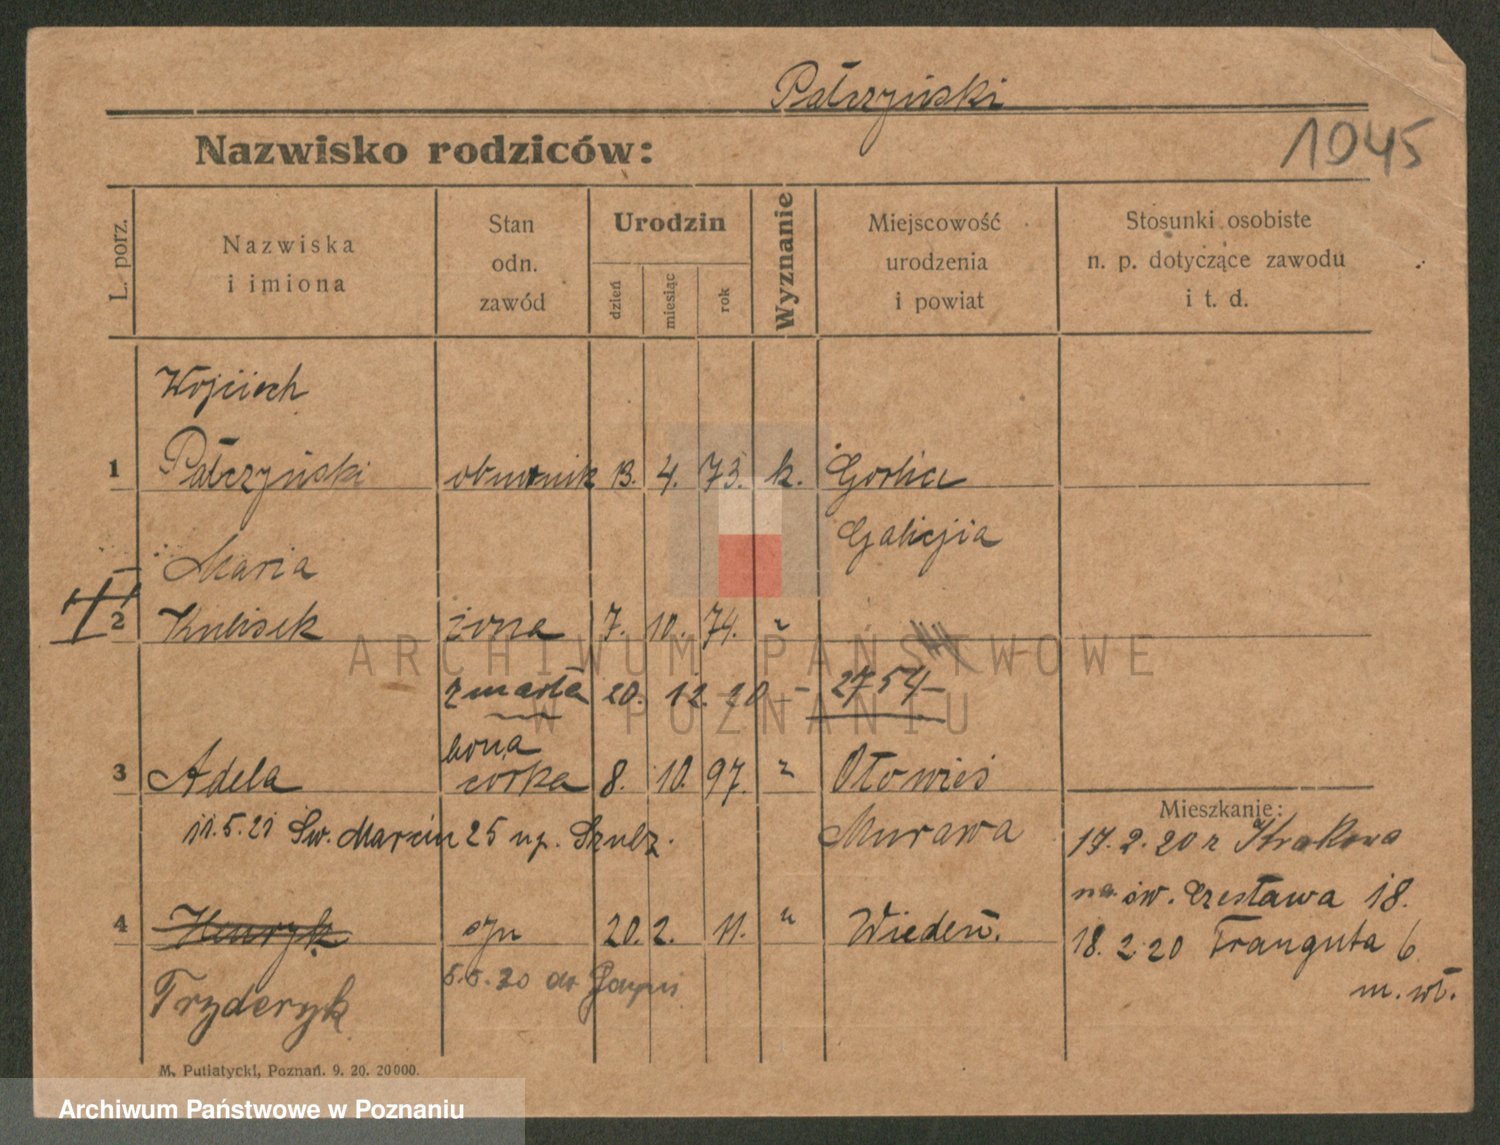 Pałczyński
Nazwisko rodziców:
1045
L. porz.
Nazwiska
i imiona
Stan
odn.
zawód
Urodzin
dzień
miesiąc
rok
Wyznanie
Miejscowość
urodzenia
i powiat
Stosunki osobiste
n. p. dotyczące zawodu
i t. d.
Wojciech
1 Pałczyński obuwnik 13. 4. 73. k. Gorlice
Galicjia
Maria
2 Kubisek żona 7. 10. 74. "
zmarła 20. 12. 20 – 2754–
bona
3 Adela córka 8. 10. 97. "
11.5.21 Św. Marcin 25 up. Szulz.
Murawa
Mieszkanie:
17.2.20 z Krakowa
na św. Czesława 18.
4 Henryk syn 20. 2. 11. " Wiedeń.
18.2.20 Trauguta 6
m. wł.
Fryderyk
5.5.20 do
M. Putiatycki, Poznań. 9. 20. 20000.
ARCHIWUM PAŃSTWOWE
W POZNANIU
Archiwum Państwowe w Poznaniu